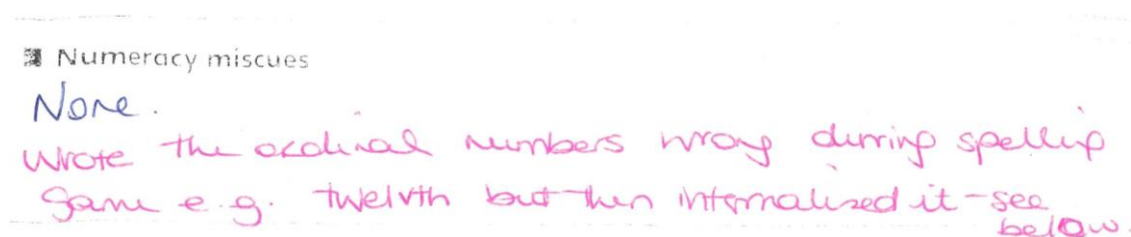 Numeracy miscues
None.
Wrote the ordinal numbers wrong during spelling
game e.g. twelvth but then internalised it - see
below.